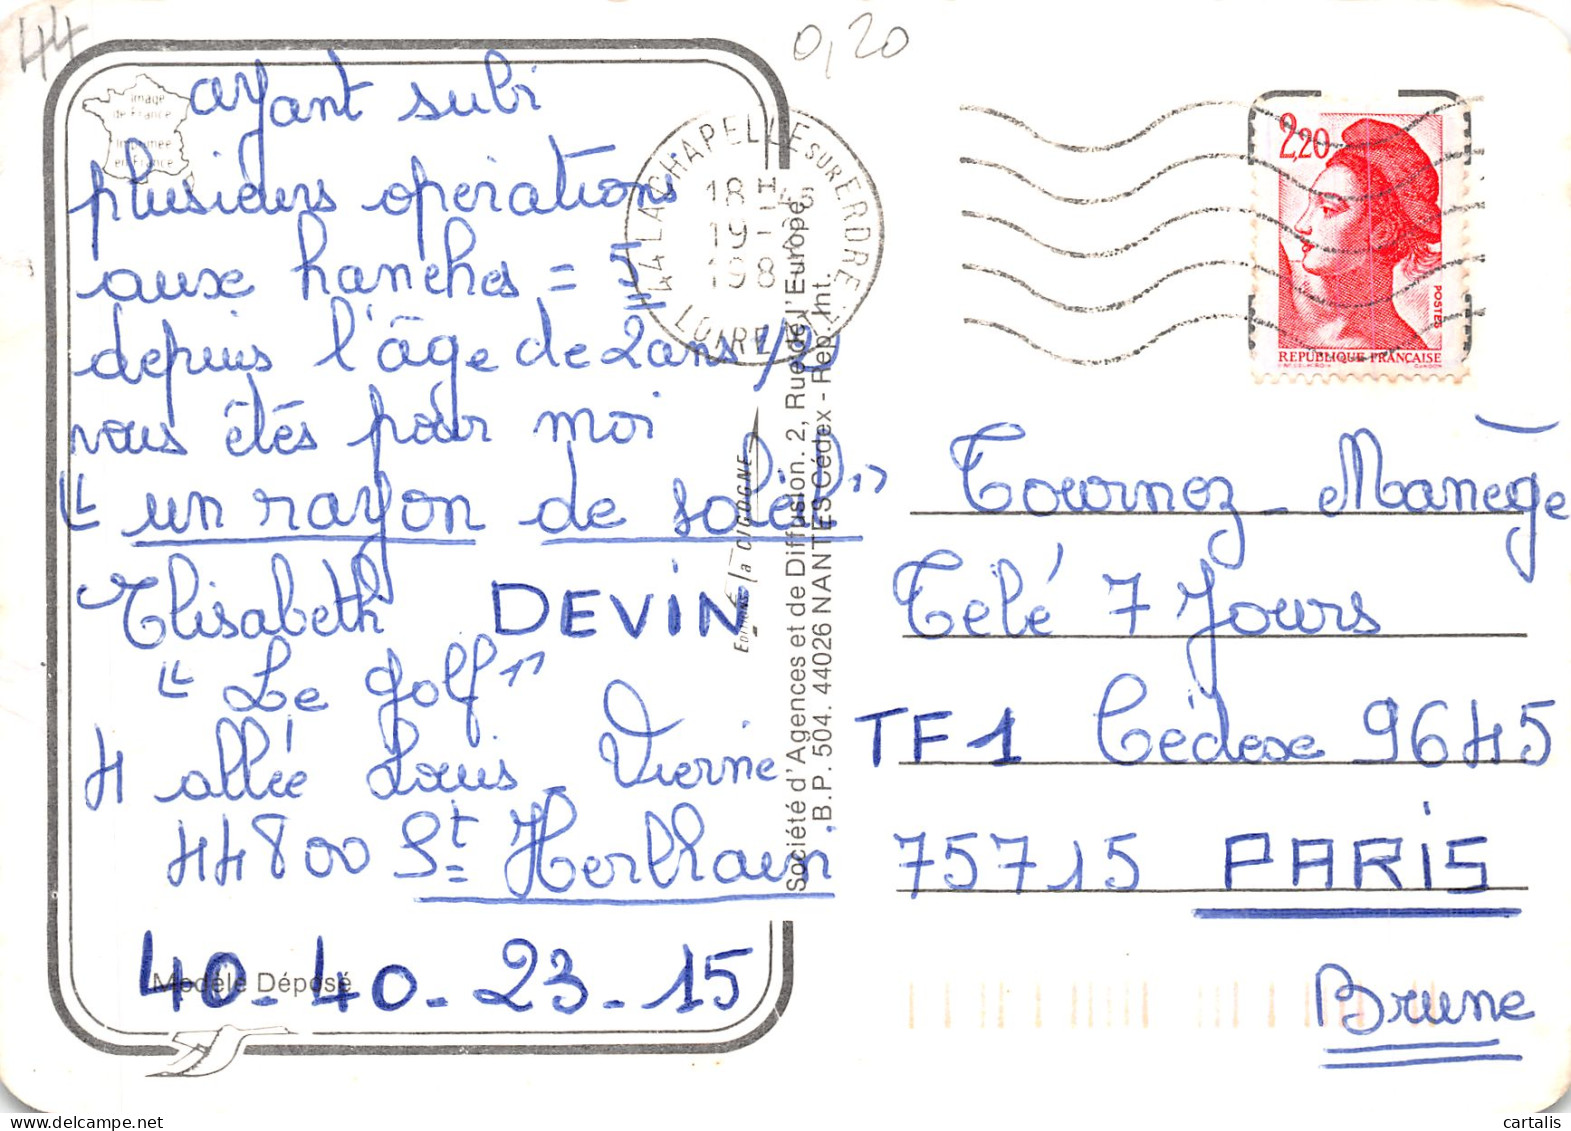 44
0,20
image
de France
imprimée
en France
ayant subi
plusieurs opérations
aux hanches = 5
depuis l'âge de 2 ans 1/2
vous étés pour moi
"un rayon de soleil"
Elisabeth DEVIN
"Le Golf"
4 allée Louis Vierne
44800 St Herblain
40-40-23-15
Modèle Déposé
44 LA CHAPELLE SUR ERDRE
18 H
19-
198
LOIRE
Editions la CIGOGNE
Société d'Agences et de Diffusion. 2, Rue de l'Europe
B.P. 504. 44026 NANTES Cédex - Rep. Int.
2,20
POSTES
REPUBLIQUE FRANÇAISE
Tournez-Manège
Télé 7 Jours
TF1 Cédex 9645
75715 PARIS
Brune
cartalis